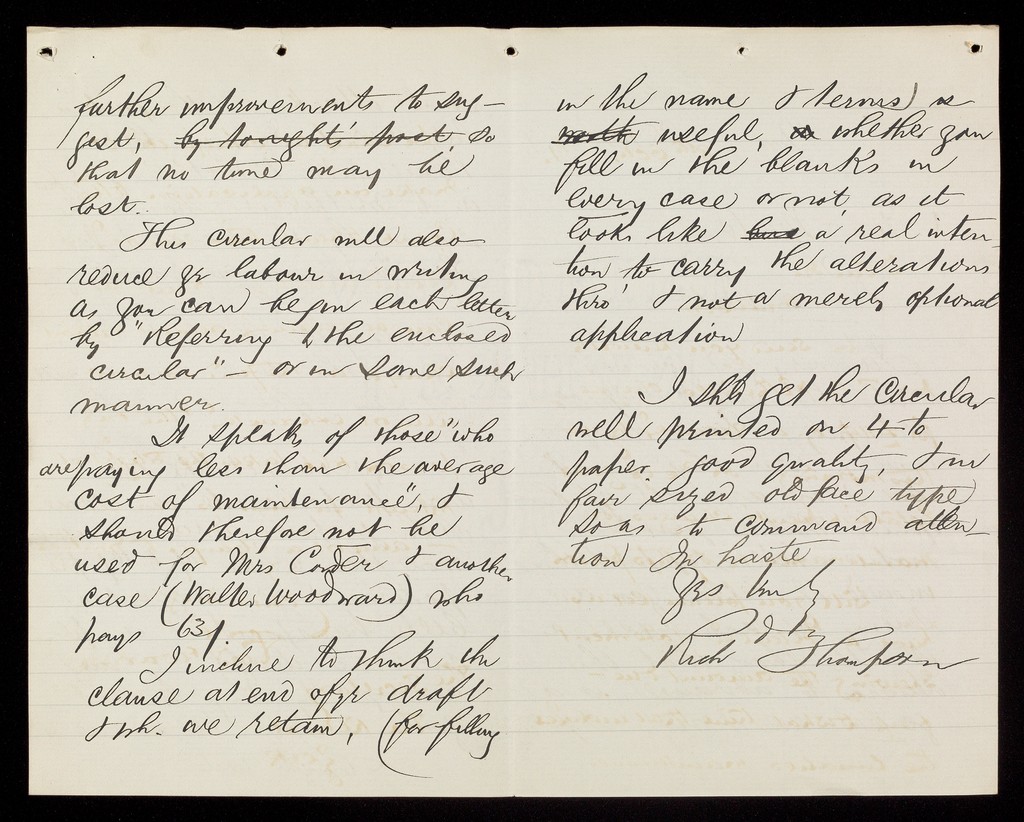 further improvements to sug-
gest, by to-night's post, so
that no time may be
lost.
This circular will also
reduce yr labour in writing
as you can begin each letter
by "Referring to the enclosed
circular" - or in some such
manner.
It speaks of those "who
are paying less than the average
cost of maintenance", &
should therefore not be
used for Mrs Corder & another
case (Walter Woodward) who
pays 63/.
I incline to think the
clause at end of yr draft
& wh. we retain, (for filling
in the name & terms) is
useful, whether you
fill in the blanks in
every case or not, as it
looks like a real inten-
tion to carry the alterations
thro' & not a merely optional
application
I shd get the Circular
well printed on 4to
paper good quality, & in
fair sized old face type
so as to command atten-
tion In haste
Yrs truly
Richd Thompson